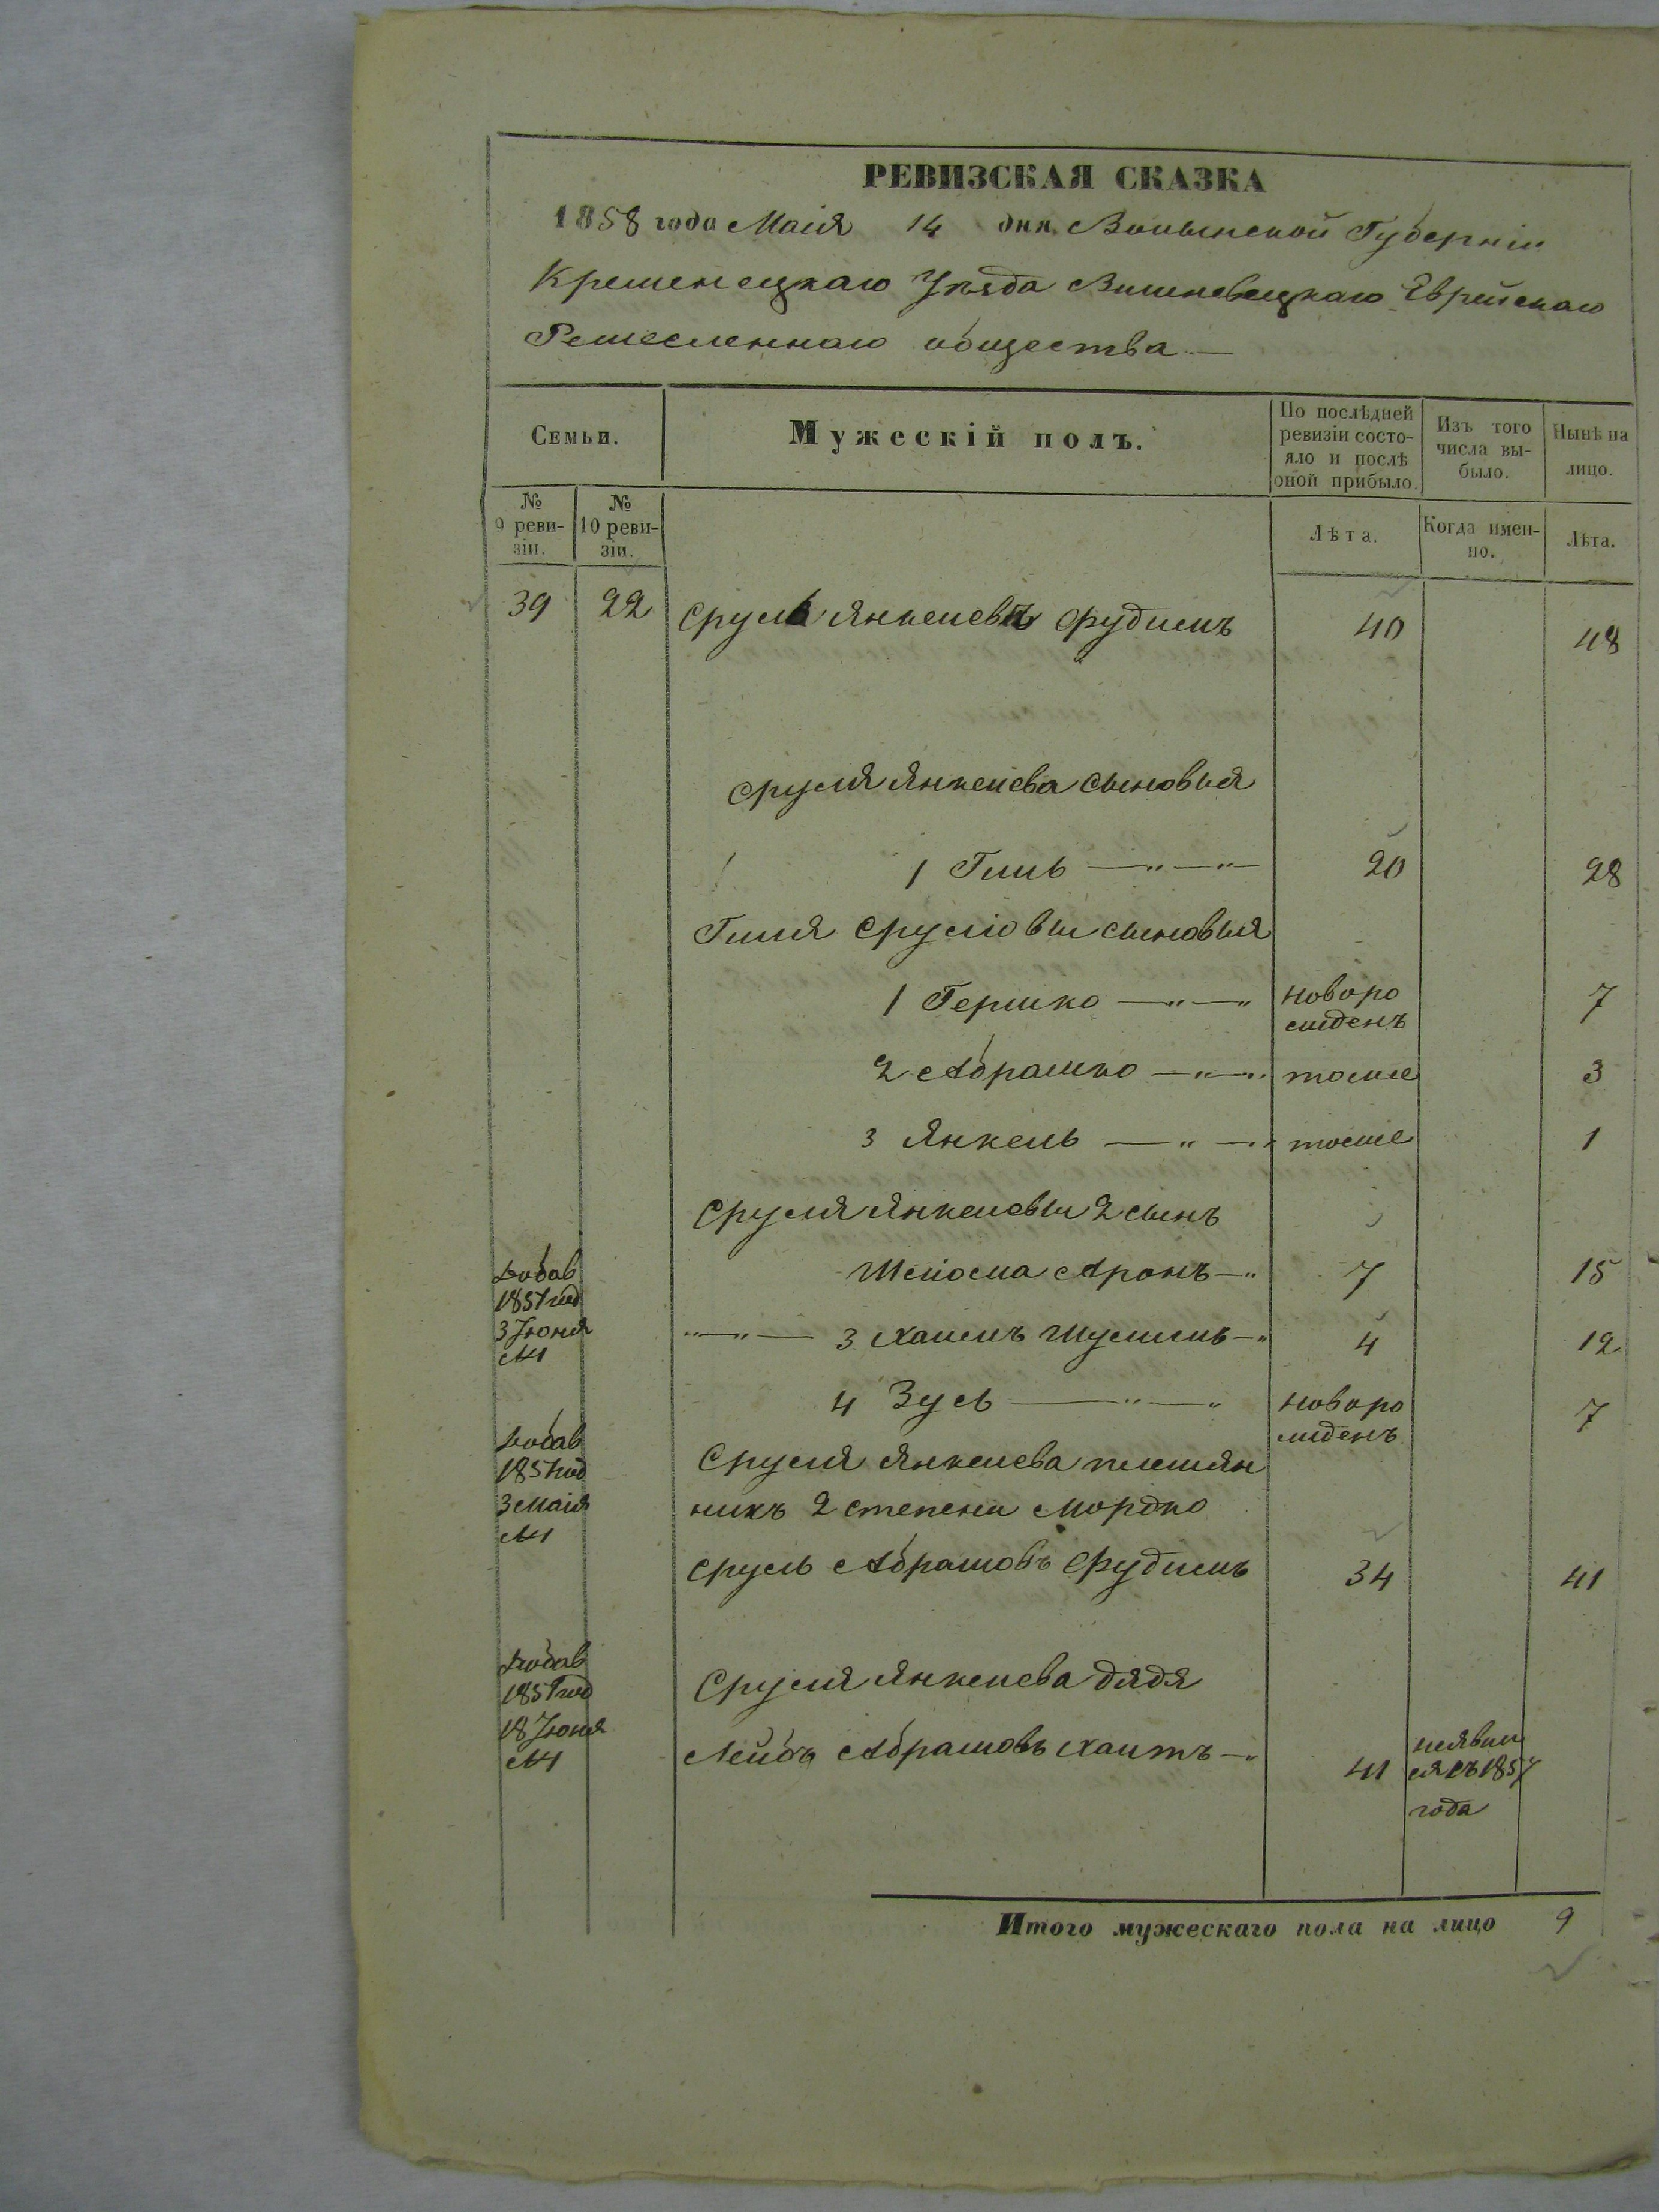 РЕВИЗСКАЯ СКАЗКА
1858 года Маія 14 дня. Волынской Губерніи
Кременецкаго Уѣзда Вишневецкаго Еврейскаго
Ремесленнаго общества.—
Семьи.
Мужескій полъ.
По послѣдней ревизіи состо-яло и послѣ оной прибыло.
Изъ того числа вы-было.
Нынѣ на лицо.
№ 9 реви-зіи.
№ 10 реви-зіи.
Лѣта.
Когда имен-но.
Лѣта.
39 22 Сруль Янкелевъ Фудимъ 40 48
Сруля Янкелева сыновья
1 Гиль —"—"— 20 28
Гиля Срулiовы сыновья
1 Гершко —"—" новоро жденъ 7
2 Абрашко —"—" тоже 3
3 Янкель —"—" тоже 1
Сруля Янкелевы 2 сынъ
Шліома Аронъ —" 7 15
Добав 1851 год 3 Іюня №1
"—"— 3 Хаимъ Шулимъ —" 4 12
4 Зусь —"—" новоро жденъ 7
Добав 1851 год 3 Маія №1
Сруля Янкелева племян
никъ 2 степени Мордко
Сруль Абрамовъ Фудимъ 34 41
Добав 1851 год 18 Іюня №1
Сруля Янкелева дядя
Лейбъ Абрамовъ Хаитъ —" 41 неявил ся съ 1857 года
Итого мужескаго пола на лицо 9